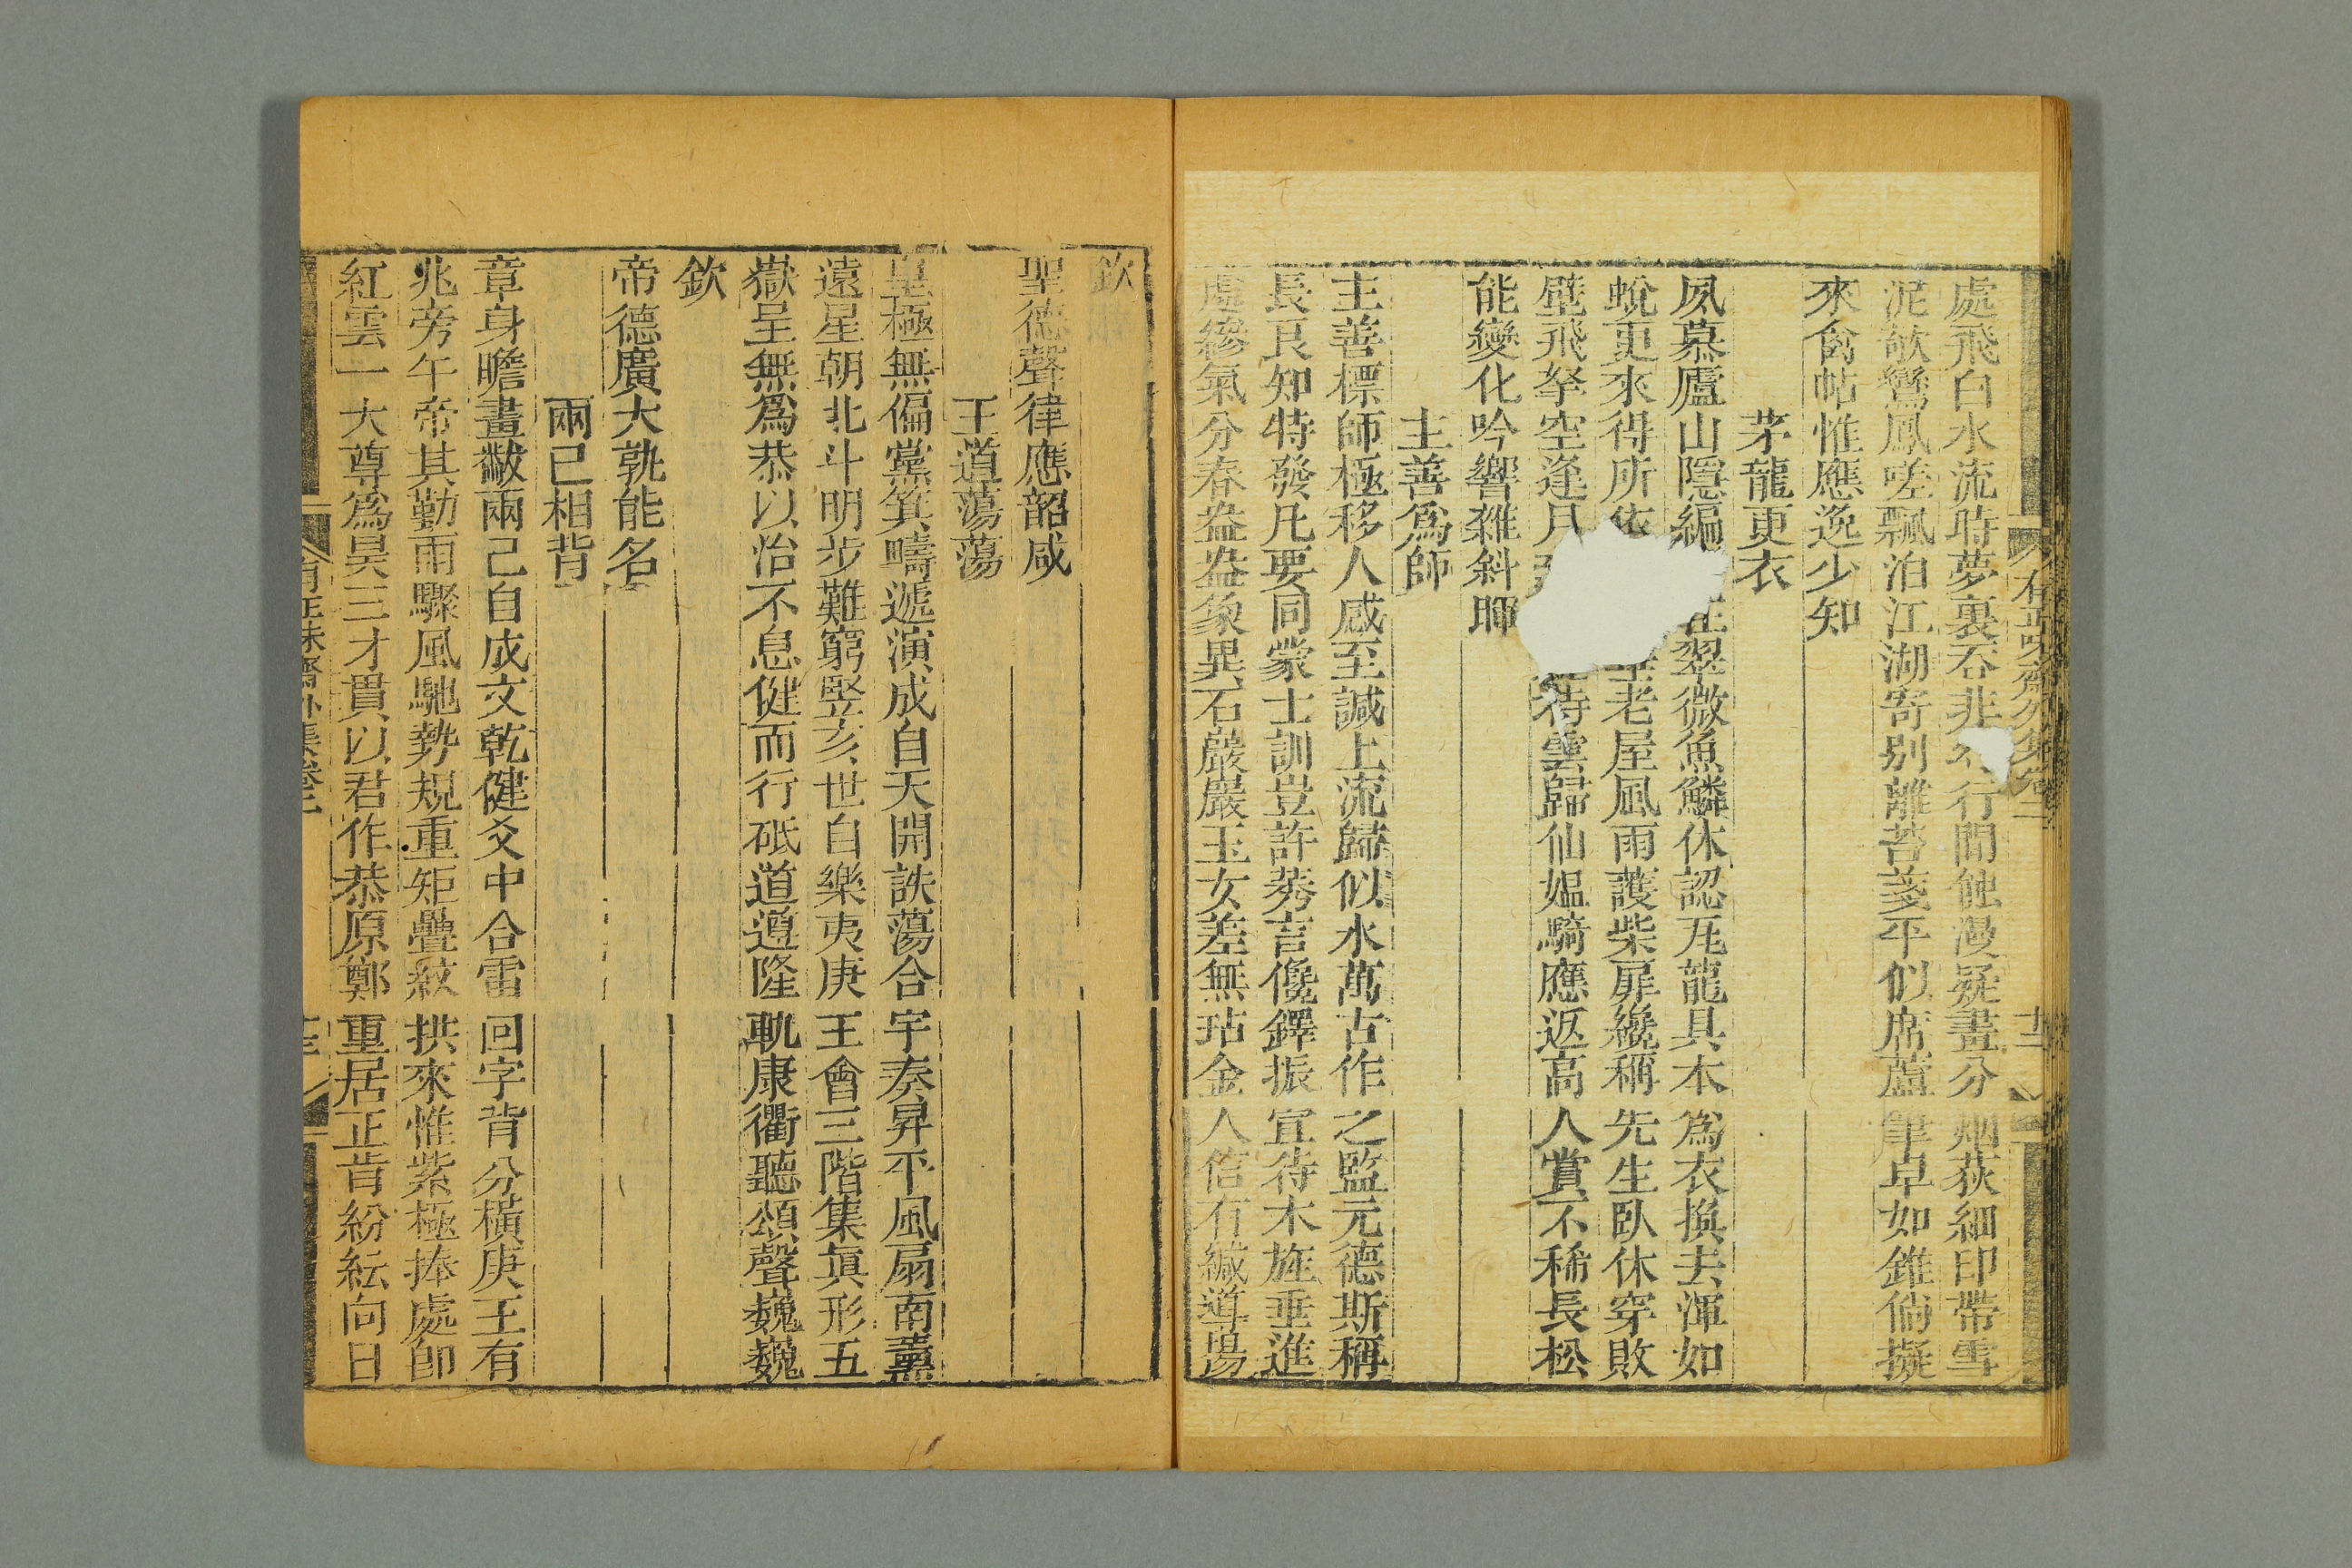 有正味齋外集卷二
十二
處飛白水流時夢裏吞非行間蝕漫疑畫分烟荻細印帶雪
泥欹鸞鳳嗟飄泊江湖寄别離苔箋平似席蘆筆卓如錐倘擬
來禽帖惟應逸少知
茅龍更衣
夙慕廬山隱編翠微魚鱗休認瓦龍具本為衣換去渾如
蛻更來得所依老屋風雨護柴扉纔稱先生臥休穿敗
壁飛拏空逢月待雲歸仙媼騎應返高人賞不稀長松
能變化吟響雜斜暉
主善為師
主善標師極移人感至諴上流歸似水萬古作之監元德斯稱
長良知特發凡要同蒙士訓豈許莠言儳鐸振宣待木旌垂進
虛縿氣分春盎盎象異石巖巖玉女差無玷金人信有緘導陽
欽
聖德聲律應韶咸
王道蕩蕩
皇極無偏黨箕疇遞演成自天開詄蕩合宇奏昇平風扇南薰
遠星朝北斗明步難窮竪亥世自樂夷庚王會三階集眞形五
嶽呈無為恭以治不息健而行砥道遵隆軌康衢聽頌聲巍巍
欽
帝德廣大孰能名
兩已相背
章身瞻畫黻兩己自成文乾健爻中合雷回字背分橫庚王有
兆旁午帝其勤雨驟風馳勢規重矩疊紋拱來惟紫極捧處卽
紅雲一大尊為昊三才貫以君作恭原鄭重居正肯紛紜向日
有正味齋外集卷二
十三